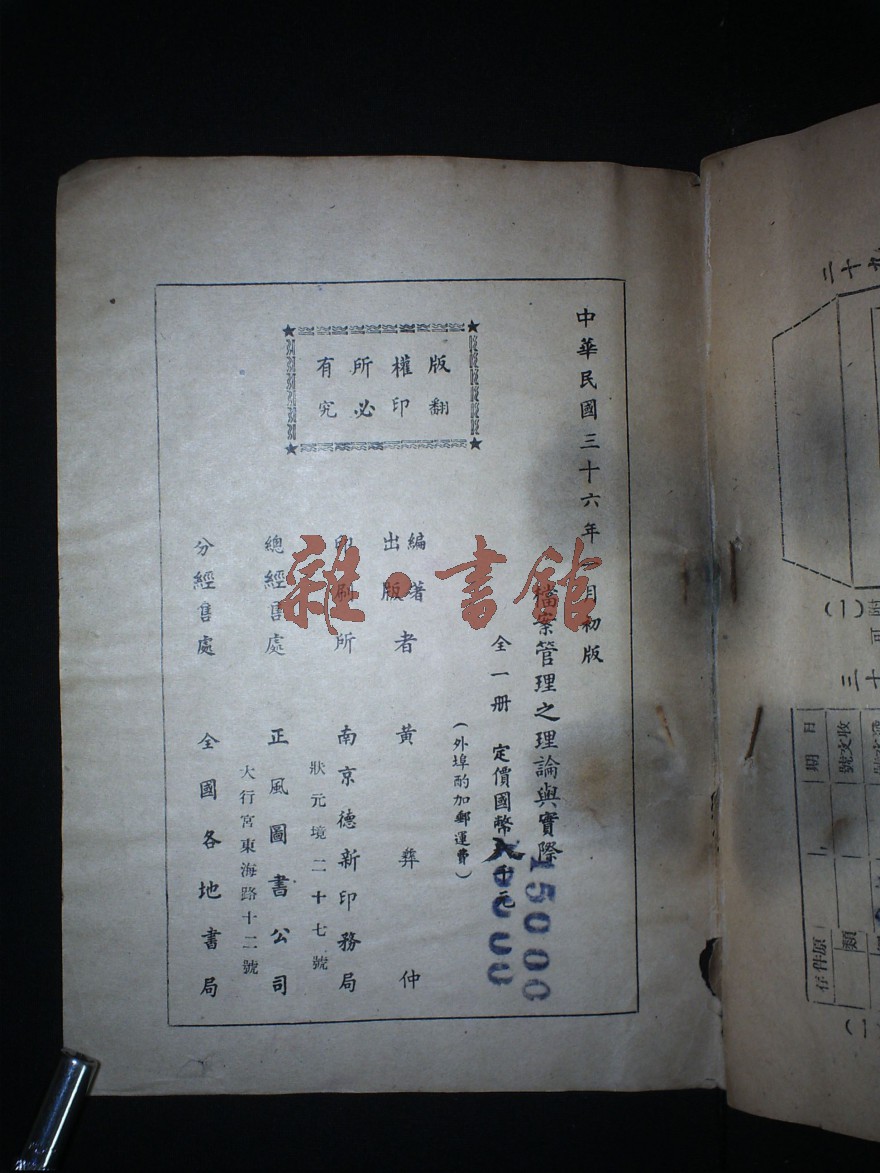 中華民國三十六年 月初版
檔案管理之理論與實際
全一册 定價國幣 千元
15000
(外埠酌加郵運費)
版權所有
翻印必究
編著
出版者 黃彝仲
印刷所 南京德新印務局
狀元境二十七號
總經售處 正風圖書公司
大行宮東海路十二號
分經售處 全國各地書局
雜·書館
三十九
(1)
三十
日期
收文號
類
原件存
(1